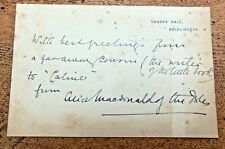 THORPE HALL,
BRIDLINGTON.
With best greetings from
a faraway cousin (the writer
of the little book
to "Calive"
from
Alice Macdonald of the Isles